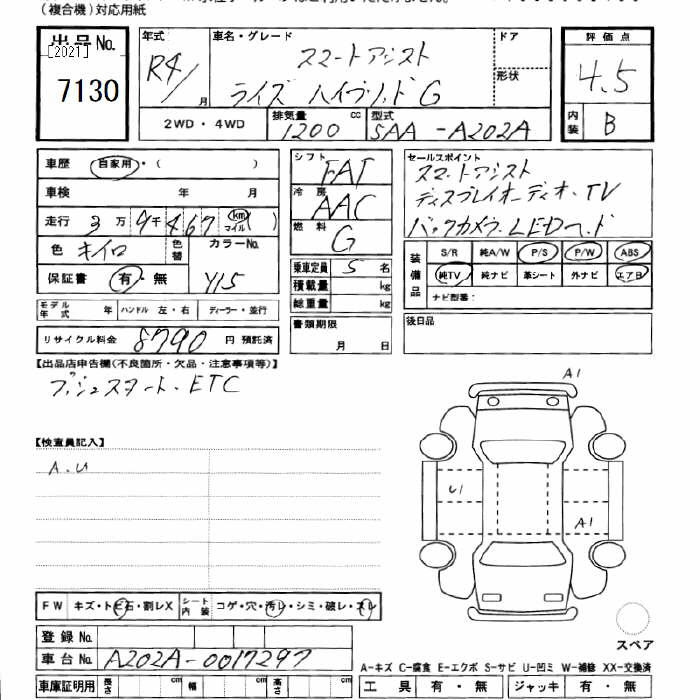 (複合機)対応用紙
出品No.
[2021]
7130
年式
R4/
月
車名・グレード
スマートアシスト
ライズ ハイブリッド G
ドア
形状
2WD・4WD
排気量
1200
cc
型式
5AA-A202A
評価点
4.5
内装
B
車歴
自家用・( )
車検
年 月
走行
3万 4千 467
km
マイル
( )
色
キイロ
色替
カラーNo.
Y15
保証書
有・無
モデル年式
年
ハンドル 左・右
ディーラー・並行
リサイクル料金
8790
円 預託済
シフト
FAT
冷房
AAC
燃料
G
乗車定員
5
名
積載量
kg
総重量
kg
書類期限
月 日
セールスポイント
スマートアシスト
ディスプレイオーディオ・TV
バックカメラ.LEDヘッド
装備品
S/R 純A/W P/S P/W ABS
純TV 純ナビ 革シート 外ナビ エアB
ナビ型番:
後日品
【出品店申告欄(不良箇所・欠品・注意事項等)】
プッシュスタート・ETC
【検査員記入】
A.U
A1
U1
A1
FW
キズ・トビ石・割レX
シート内装
コゲ・穴・汚レ・シミ・破レ・スレ
登録No.
車台No.
A202A-0017297
車庫証明用
長さ
cm
幅
cm
高さ
cm
スペア
A-キズ C-腐食 E-エクボ S-サビ U-凹ミ W-補修 XX-交換済
工具
有・無
ジャッキ
有・無